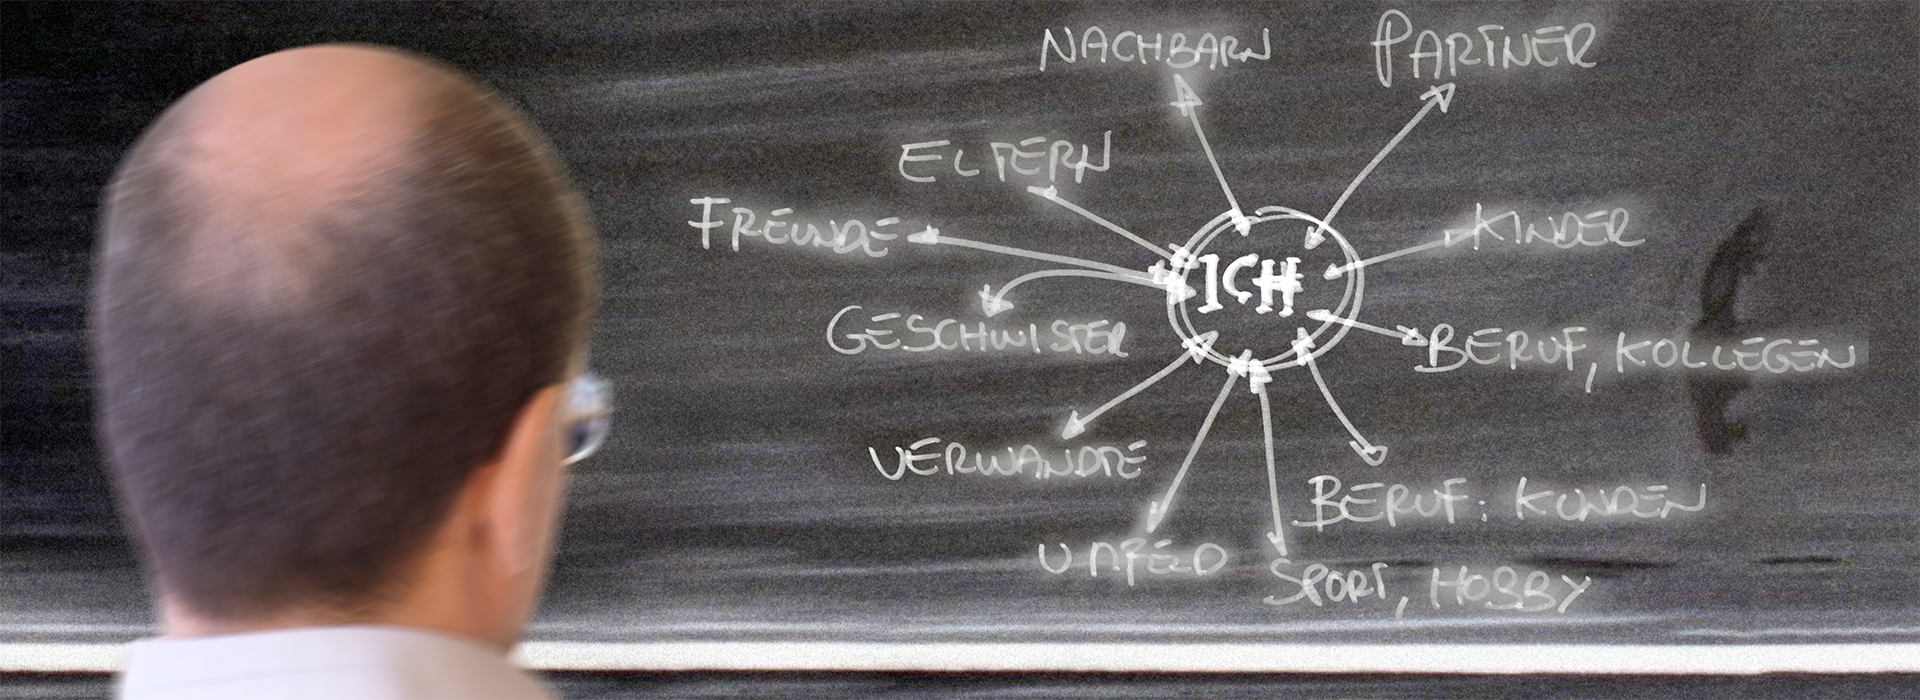 NACHBARN
PARTNER
ELTERN
FREUNDE
KINDER
ICH
GESCHWISTER
BERUF, KOLLEGEN
VERWANDTE
BERUF: KUNDEN
UMFELD
SPORT, HOBBY